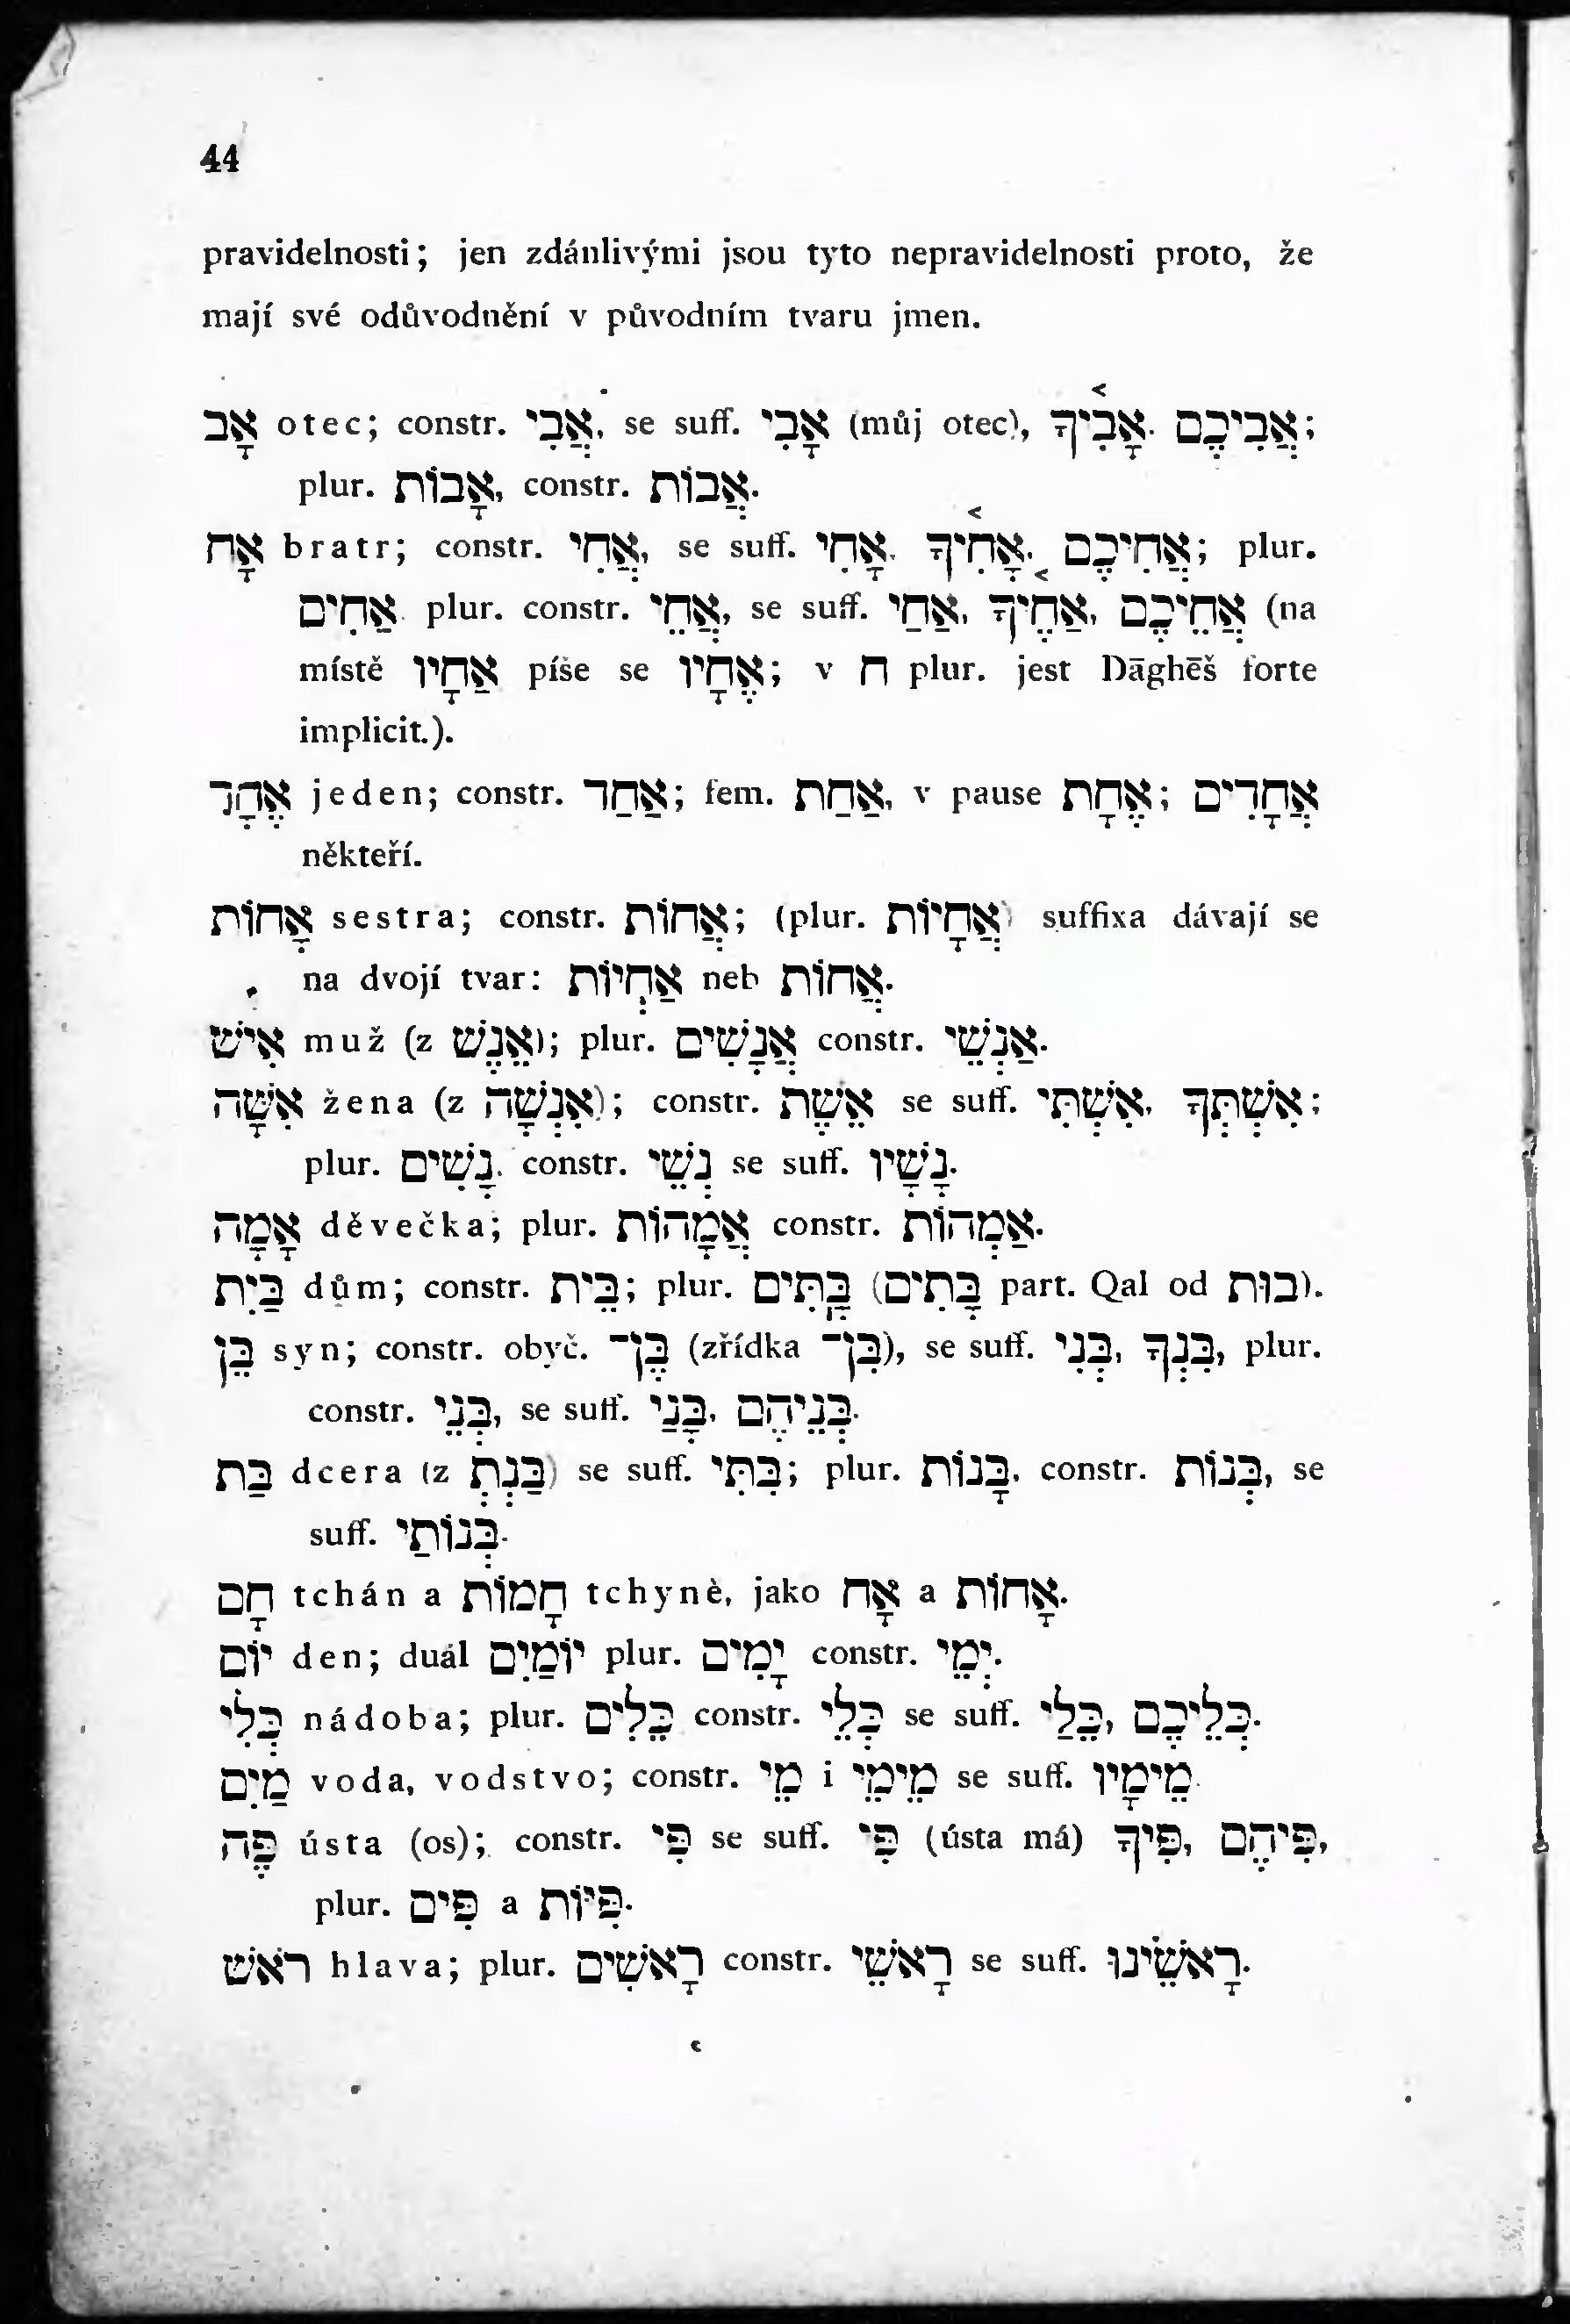 44
pravidelnosti; jen zdánlivými jsou tyto nepravidelnosti proto, že
mají své odůvodnění v původním tvaru jmen.
אָב otec; constr. אֲבִי, se suff. אָבִי (můj otec), אָבִ֫יךָ, אֲבִיכֶם;
plur. אָבוֹת, constr. אֲבוֹת.
אָח bratr; constr. אֲחִי, se suff. אָחִי, אָחִ֫יךָ, אֲחִיכֶם; plur.
אַחִים, plur. constr. אֲחֵי, se suff. אַחַי, אַחֶ֫יךָ, אֲחֵיכֶם (na
místě אַחָיו píše se אֶחָיו; v ח plur. jest Dāghēš forte
implicit.).
אֶחָד jeden; constr. אַחַד; fem. אַחַת, v pause אֶחָת; אֲחָדִים
někteří.
אָחוֹת sestra; constr. אֲחוֹת; (plur. אֲחָיוֹת) suffixa dávají se
na dvojí tvar: אַחְיוֹת neb אֲחוֹת.
אִישׁ muž (z אֵנֶשׁ); plur. אֲנָשִׁים constr. אַנְשֵׁי.
אִשָּׁה žena (z אִנְשָׁה); constr. אֵשֶׁת se suff. אִשְׁתִּי, אִשְׁתְּךָ;
plur. נָשִׁים, constr. נְשֵׁי se suff. נָשָׁיו.
אָמָה děvečka; plur. אֲמָהוֹת constr. אַמְהוֹת.
בַּיִת dům; constr. בֵּית; plur. בָּתִּים (בָּתִים part. Qal od בוּת).
בֵּן syn; constr. obyč. בֶּן־ (zřídka בִּן־), se suff. בְּנִי, בִּנְךָ, plur.
constr. בְּנֵי, se suff. בָּנַי, בְּנֵיהֶם.
בַּת dcera (z בַּנְתְּ) se suff. בִּתִּי; plur. בָּנוֹת, constr. בְּנוֹת, se
suff. בְּנוֹתַי.
חָם tchán a חָמוֹת tchyně, jako אָח a אָחוֹת.
יוֹם den; duál יוֹמַיִם plur. יָמִים constr. יְמֵי.
כְּלִי nádoba; plur. כֵּלִים constr. כְּלֵי se suff. כֵּלַי, כְּלֵיכֶם.
מַיִם voda, vodstvo; constr. מֵי i מֵימֵי se suff. מֵימָיו.
פֶּה ústa (os); constr. פִּי se suff. פִּי (ústa má) פִּיךָ, פִּיהֶם,
plur. פִּים a פִּיּוֹת.
רֹאשׁ hlava; plur. רָאשִׁים constr. רָאשֵׁי se suff. רָאשֵׁינוּ.